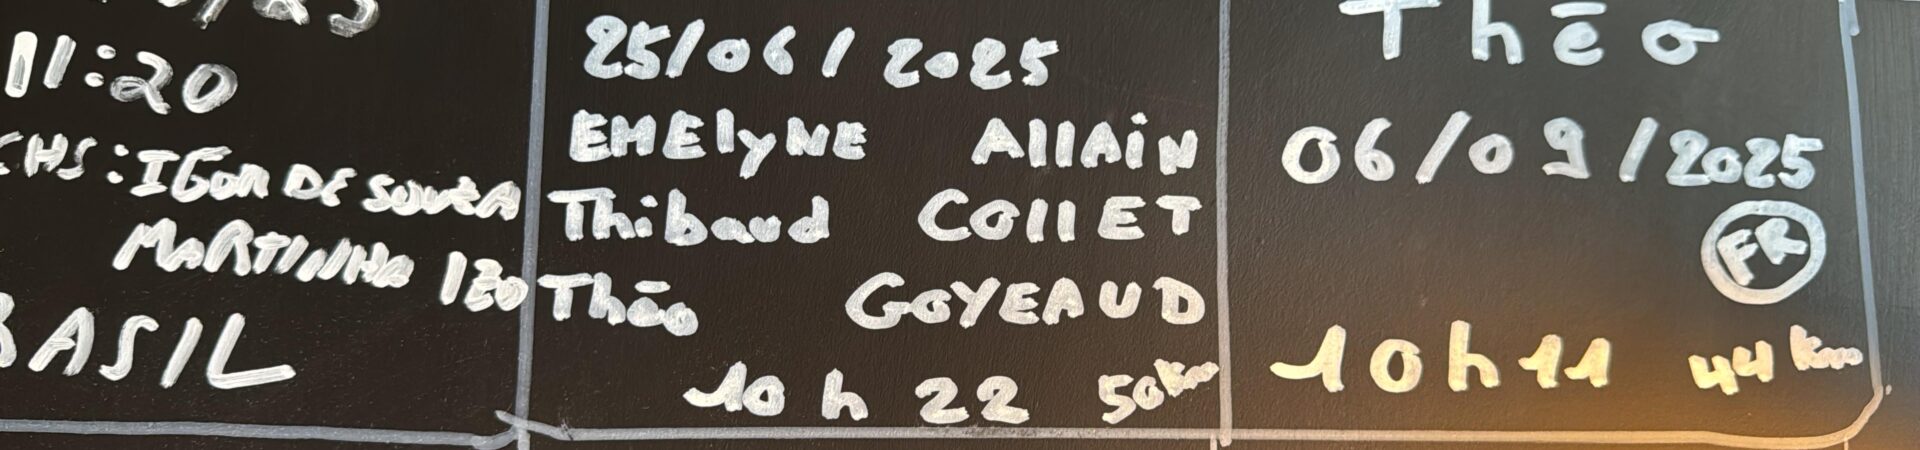 11:20
CHS: IGOR DE SOUZA
MARTINHO LEO
BASIL
25/06/2025
EMElyNE AllAiN
Thibaud COllET
Théo GOYEAUD
10 h 22 50 km
Théo
06/09/2025
FR
10h11 44 km